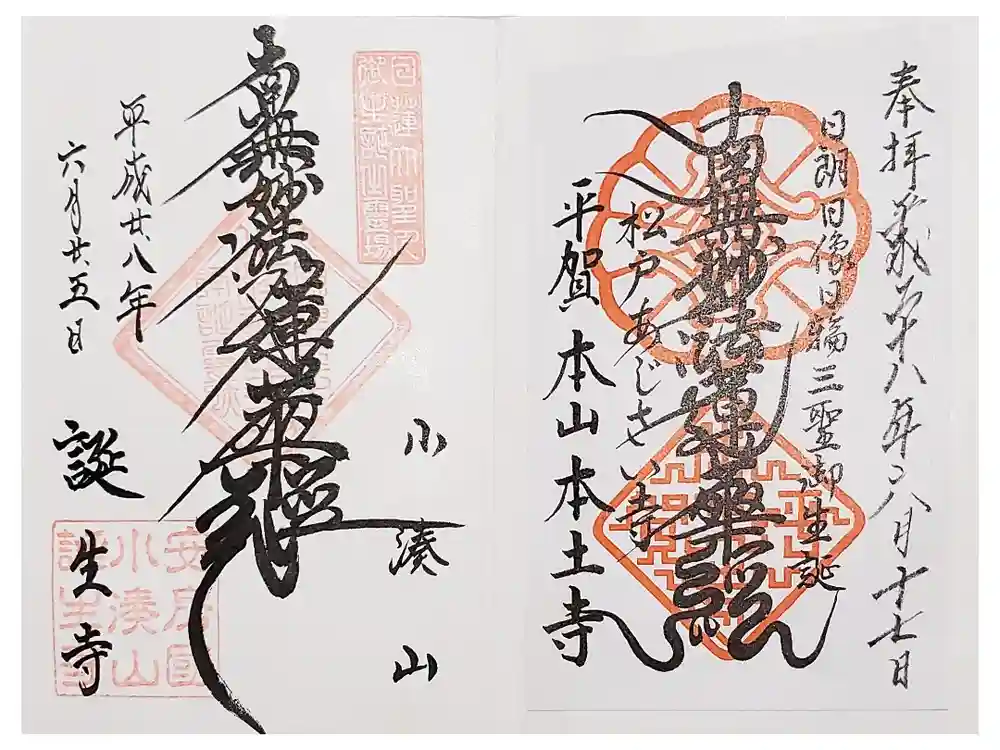 奉拝 平成廿八年六月十七日
日朗日像日輪三聖御生誕
南無妙法蓮華経
松戸あじさい寺
平賀 本山本土寺
日蓮大聖人
御生誕出霊場
小湊山
南無妙法蓮華経
平成廿八年
六月廿五日
誕生寺
安房國
小湊山
誕生寺